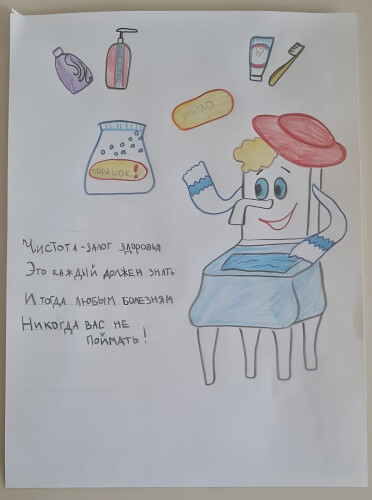 МЫЛО
ПАРАШОК!
Чистота-залог здоровья
Это каждый должен знать
И тогда любым болезням
Никогда вас не
поймать!